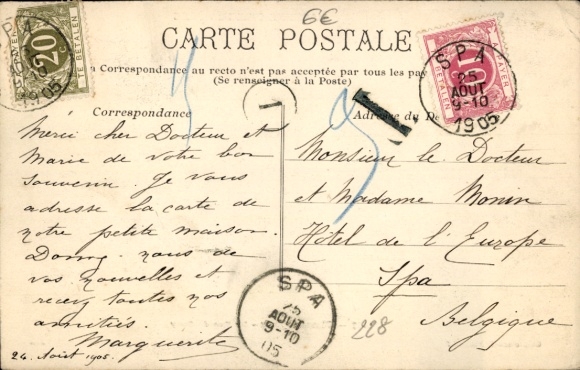 6€
20
A PAYER
TE BETALEN
1905
CARTE POSTALE
A PAYER
10
BETALEN
SPA
25
AOUT
9-10
1905
a Correspondance au recto n'est pas acceptée par tous les pay
(Se renseigner à la Poste)
T
Correspondance
Adresse du De
Merci cher Docteur et
Marie de votre bon
souvenir. Je vous
adresse la carte de
notre petite maison.
Donnez nous de
vos nouvelles et
recevez toutes nos
amitiés.
Marguerite
24 Août 1905.
Monsieur le Docteur
et Madame Monin
Hôtel de l'Europe
Spa
Belgique
SPA
25
AOUT
9-10
05
228